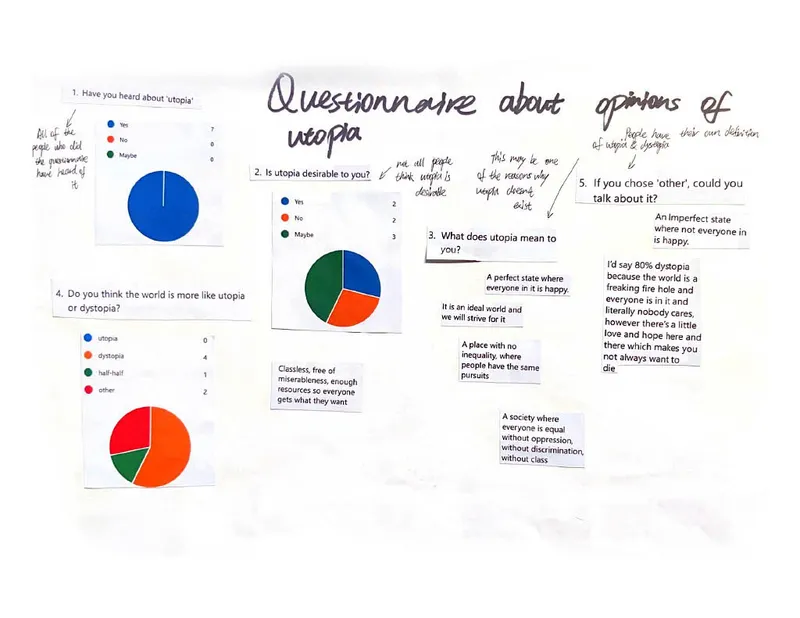 Questionnaire about opinions of
utopia
1. Have you heard about 'utopia'
All of the
people who did
the questionnaire
have heard of
it
Yes 7
No 0
Maybe 0
2. Is utopia desirable to you?
not all people
think utopia is
desirable
Yes 2
No 2
Maybe 3
this may be one
of the reasons why
utopia doesn't
exist
3. What does utopia mean to
you?
A perfect state where
everyone in it is happy.
It is an ideal world and
we will strive for it
A place with no
inequality, where
people have the same
pursuits
Classless, free of
miserableness, enough
resources so everyone
gets what they want
A society where
everyone is equal
without oppression,
without discrimination,
without class
4. Do you think the world is more like utopia
or dystopia?
utopia 0
dystopia 4
half-half 1
other 2
People have their own definition
of utopia & dystopia
5. If you chose 'other', could you
talk about it?
An Imperfect state
where not everyone in
is happy.
I'd say 80% dystopia
because the world is a
freaking fire hole and
everyone is in it and
literally nobody cares,
however there's a little
love and hope here and
there which makes you
not always want to
die